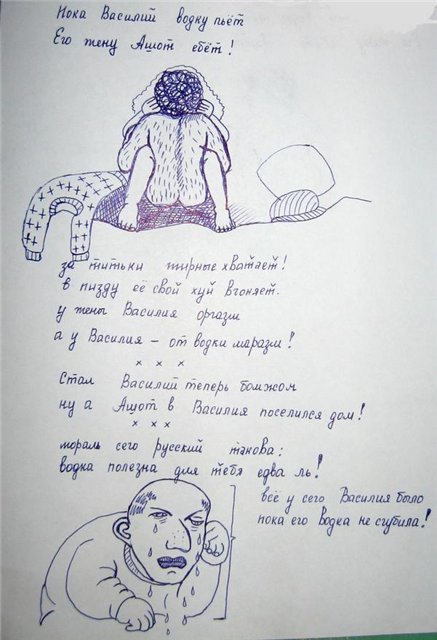 Пока Василий водку пьёт
Его жену Ашот ебёт!
за титьки жирные хватает!
в пизду её свой хуй вгоняет.
у жены Василия оргазм
а у Василия – от водки маразм!
× × ×
Стал Василий теперь бомжом
ну а Ашот в Василия поселился дом!
× × ×
мораль сего русский такова:
водка полезна для тебя едва ль!
всё у сего Василия было
пока его водка не сгубила!